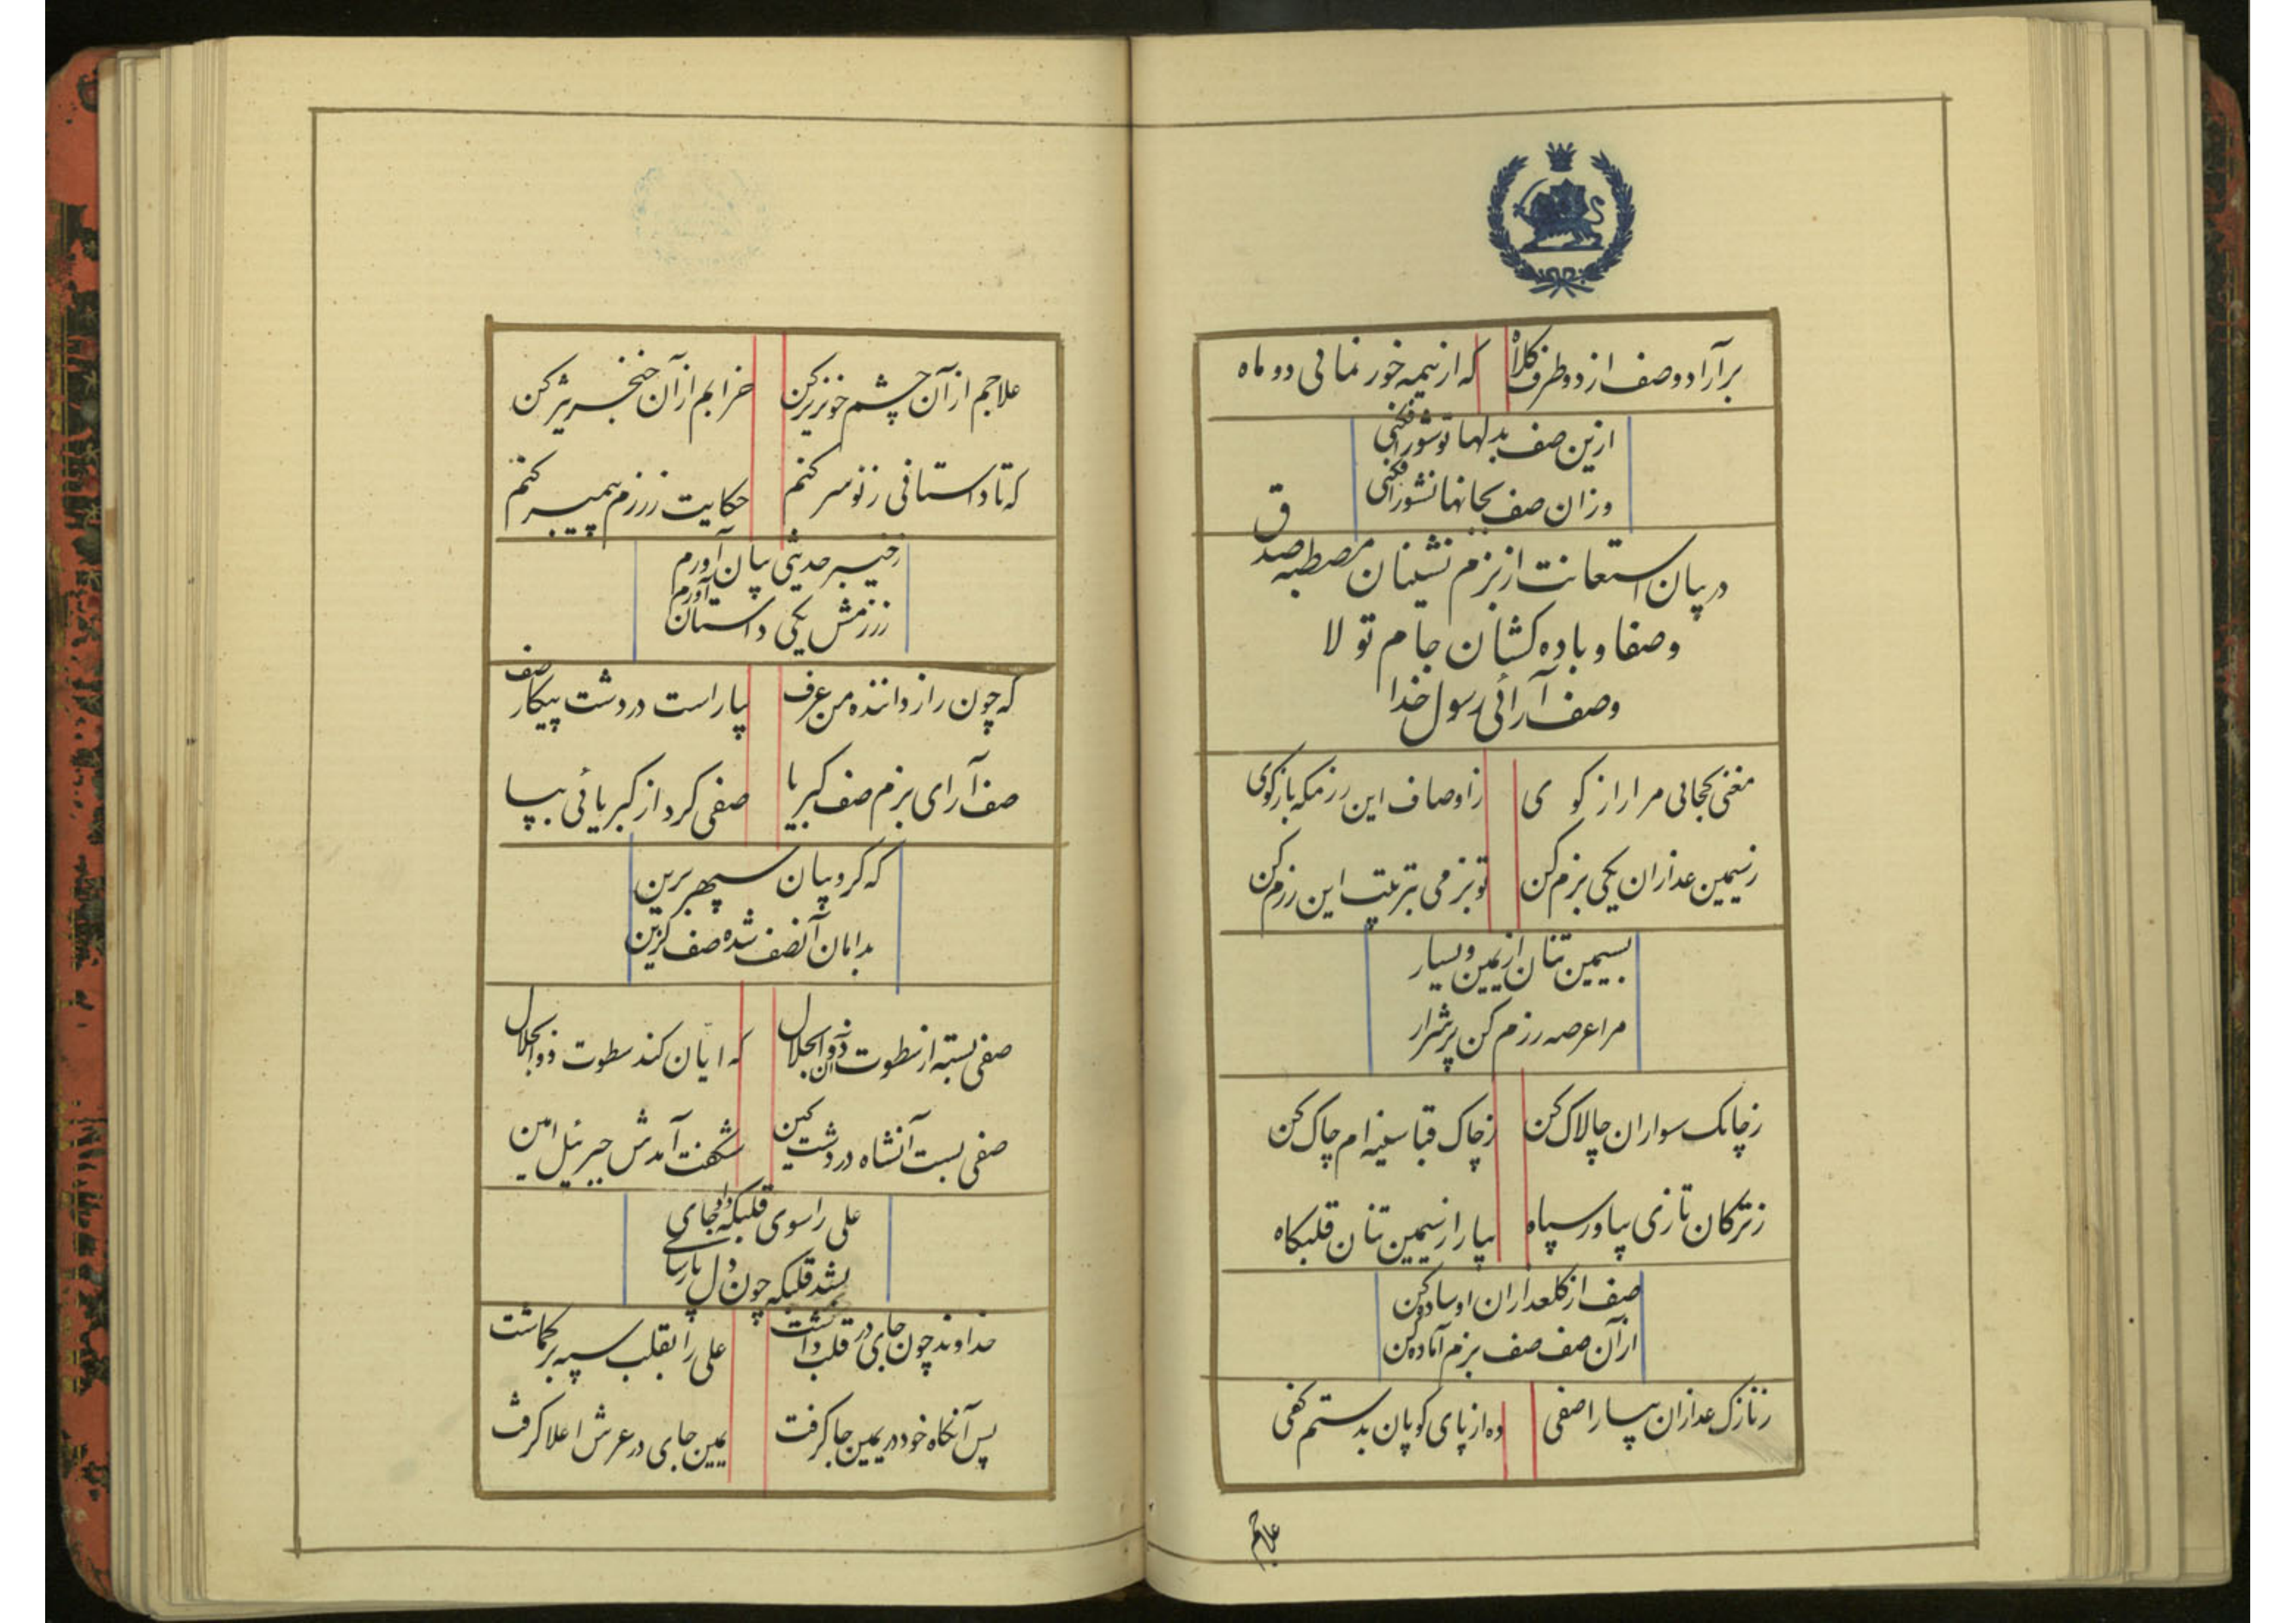 برآرا دو صف از دو طرف کلاه
که از نیمه خور نمائی دو ماه
ازین صف بدلها تو شور افکنی
وزان صف بجانها نشور افکنی
در بیان استعانت از بزم نشینان مصطبه صدق
و صفا و باده کشان جام تولا
وصف آرائی رسول خدا
مغنی کجائی مرا راز کوی
ز اوصاف این رزمکه باز کوی
ز سیمین عذاران یکی بزم کن
تو بزمی بترتیب این رزم کن
بسیمین تنان از یمین و یسار
مرا عرصه رزم کن پر شرار
ز چابک سواران چالاک کن
ز چاک قبا سینه ام چاک کن
ز ترکان تازی بیاور سپاه
بیارا ز سیمین تنان قلبکاه
صف از کلعذاران او ساده کن
از آن صف صف بزم آماده کن
ز نازک عذاران بیارا صفی
ده از پای کوبان بدستم کفی
علاجم
علاجم از آن چشم خونریز کن
خرابم از آن خنجر تیز کن
که تا داستانی ز نو سر کنم
حکایت ز رزم پیمبر کنم
ز خیبر حدیثی بیان آورم
ز رزمش یکی داستان آورم
که چون راز داننده من عرف
بیاراست در دشت پیکار صف
صف آرای بزم صف کبریا
صفی کرد از کبریائی بپا
که کروبیان سپهر برین
بدامان آنصف شده صف کزین
صفی بسته از سطوت آن ذوالجلال
که ایان کند سطوت ذوالجلال
صفی بست آنشاه در دشت کین
شکفت آمدش جبرئیل امین
علی را سوی قلبکه داد جای
بشد قلبکه چون دل پارسای
خداوند چون جای در قلب داشت
علی را بقلب سپه بر کماشت
پس آنکاه خود در یمین جا کرفت
یمین جای در عرش اعلا کرفت